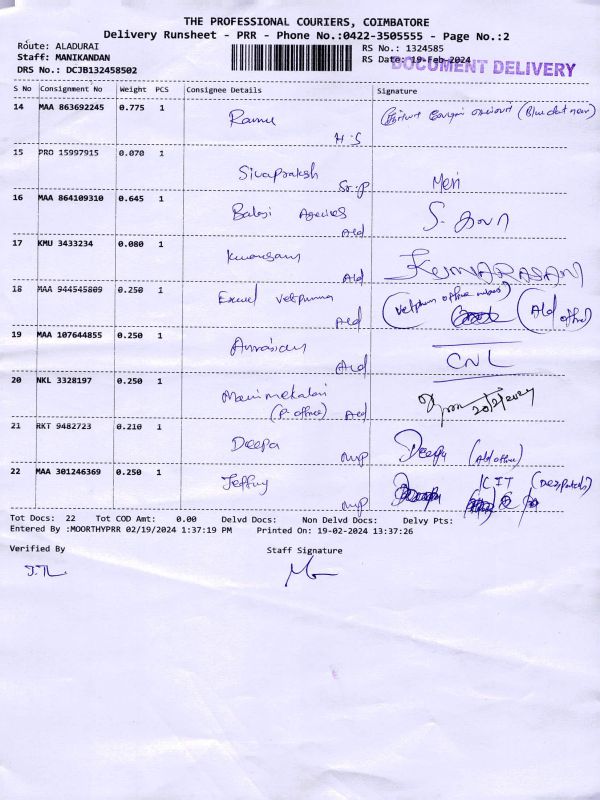 THE PROFESSIONAL COURIERS, COIMBATORE
Delivery Runsheet - PRR - Phone No.:0422-3505555 - Page No.:2
Route: ALADURAI
RS No.: 1324585
Staff: MANIKANDAN
RS Date: 19-Feb-2024
DOCUMENT DELIVERY
DRS No.: DCJB132458502
S No Consignment No Weight PCS Consignee Details Signature
14 MAA 863692245 0.775 1 Ramu
H.S
15 PRO 15997915 0.070 1 Sivapraksh Meri
16 MAA 864109310 0.645 1 Balaji Agencies
Ald
17 KMU 3433234 0.080 1 KUMARASAN
Ald
18 MAA 944545809 0.250 1 (Ald office)
Ald
19 MAA 107644855 0.250 1 CNL
Ald
20 NKL 3328197 0.250 1 Manimekalai 20/2/2024
(P. office) Ald
21 RKT 9482723 0.210 1 Deepa Deepa (Ald office)
22 MAA 301246369 0.250 1 Jeffry
Tot Docs: 22 Tot COD Amt: 0.00 Delvd Docs: Non Delvd Docs: Delvy Pts:
Entered By :MOORTHYPRR 02/19/2024 1:37:19 PM Printed On: 19-02-2024 13:37:26
Verified By Staff Signature